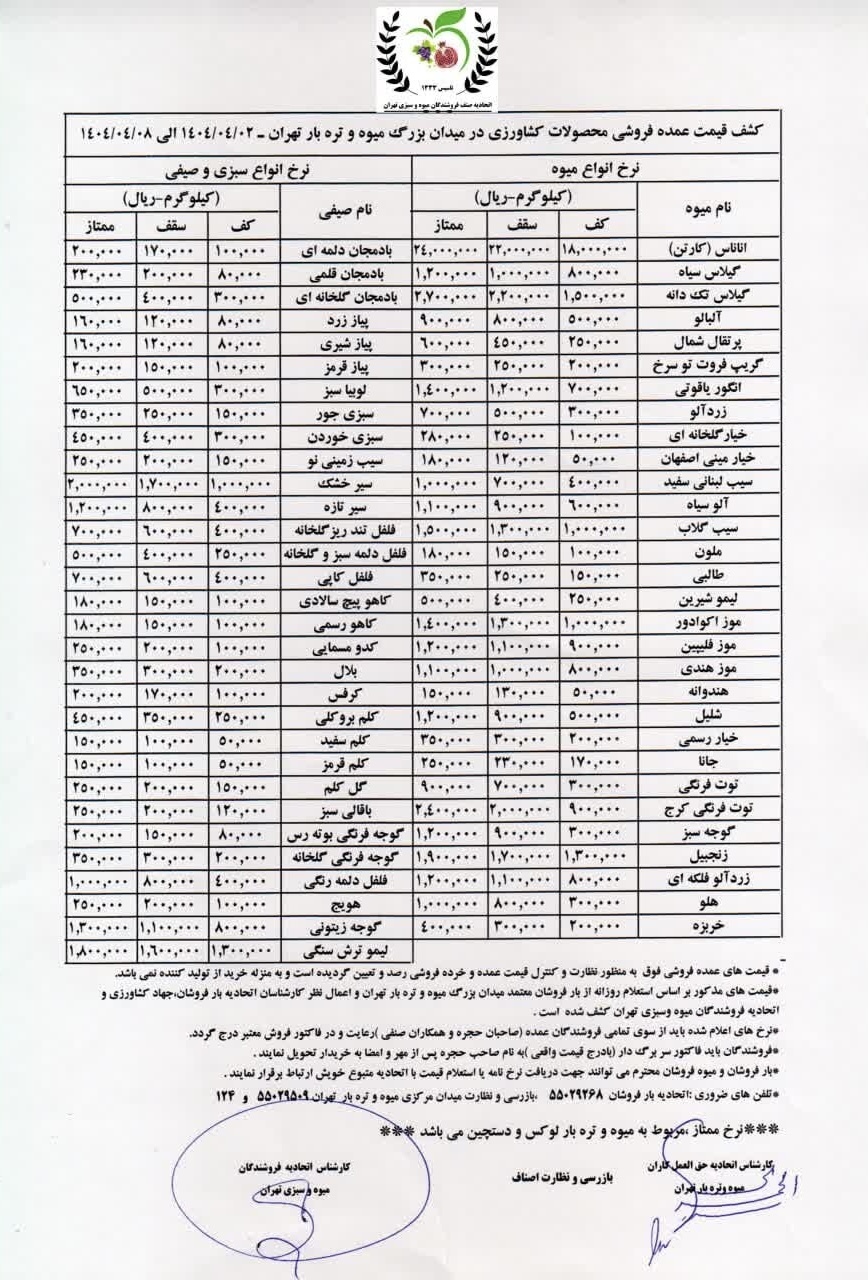 تاسیس ۱۳۳۳
اتحادیه صنف فروشندگان میوه و سبزی تهران
کشف قیمت عمده فروشی محصولات کشاورزی در میدان بزرگ میوه و تره بار تهران ـ ۱۴۰۴/۰۴/۰۲ الی ۱۴۰۴/۰۴/۰۸
نرخ انواع میوه نرخ انواع سبزی و صیفی
نام میوه (کیلوگرم-ریال) نام صیفی (کیلوگرم-ریال)
کف سقف ممتاز کف سقف ممتاز
اناناس (کارتن) ۱۸,۰۰۰,۰۰۰ ۲۲,۰۰۰,۰۰۰ ۲۴,۰۰۰,۰۰۰ بادمجان دلمه ای ۱۰۰,۰۰۰ ۱۷۰,۰۰۰ ۲۰۰,۰۰۰
گیلاس سیاه ۸۰۰,۰۰۰ ۱,۰۰۰,۰۰۰ ۱,۲۰۰,۰۰۰ بادمجان قلمی ۸۰,۰۰۰ ۲۰۰,۰۰۰ ۲۳۰,۰۰۰
گیلاس تک دانه ۱,۵۰۰,۰۰۰ ۲,۲۰۰,۰۰۰ ۲,۷۰۰,۰۰۰ بادمجان گلخانه ای ۳۰۰,۰۰۰ ۴۰۰,۰۰۰ ۵۰۰,۰۰۰
آلبالو ۵۰۰,۰۰۰ ۸۰۰,۰۰۰ ۹۰۰,۰۰۰ پیاز زرد ۸۰,۰۰۰ ۱۲۰,۰۰۰ ۱۶۰,۰۰۰
پرتقال شمال ۲۵۰,۰۰۰ ۴۵۰,۰۰۰ ۶۰۰,۰۰۰ پیاز شیری ۸۰,۰۰۰ ۱۲۰,۰۰۰ ۱۶۰,۰۰۰
گریپ فروت تو سرخ ۲۰۰,۰۰۰ ۲۵۰,۰۰۰ ۳۰۰,۰۰۰ پیاز قرمز ۱۰۰,۰۰۰ ۱۵۰,۰۰۰ ۲۰۰,۰۰۰
انگور یاقوتی ۷۰۰,۰۰۰ ۱,۲۰۰,۰۰۰ ۱,۴۰۰,۰۰۰ لوبیا سبز ۳۰۰,۰۰۰ ۵۰۰,۰۰۰ ۶۵۰,۰۰۰
زردآلو ۳۰۰,۰۰۰ ۵۰۰,۰۰۰ ۷۰۰,۰۰۰ سبزی جور ۱۵۰,۰۰۰ ۲۵۰,۰۰۰ ۳۵۰,۰۰۰
خیارگلخانه ای ۱۰۰,۰۰۰ ۲۵۰,۰۰۰ ۲۸۰,۰۰۰ سبزی خوردن ۳۰۰,۰۰۰ ۴۰۰,۰۰۰ ۴۵۰,۰۰۰
خیار مینی اصفهان ۵۰,۰۰۰ ۱۲۰,۰۰۰ ۱۸۰,۰۰۰ سیب زمینی نو ۱۵۰,۰۰۰ ۲۰۰,۰۰۰ ۲۵۰,۰۰۰
سیب لبنانی سفید ۴۰۰,۰۰۰ ۷۰۰,۰۰۰ ۱,۰۰۰,۰۰۰ سیر خشک ۱,۰۰۰,۰۰۰ ۱,۷۰۰,۰۰۰ ۲,۰۰۰,۰۰۰
آلو سیاه ۶۰۰,۰۰۰ ۹۰۰,۰۰۰ ۱,۱۰۰,۰۰۰ سیر تازه ۴۰۰,۰۰۰ ۸۰۰,۰۰۰ ۱,۲۰۰,۰۰۰
سیب گلاب ۱,۰۰۰,۰۰۰ ۱,۳۰۰,۰۰۰ ۱,۵۰۰,۰۰۰ فلفل تند ریزگلخانه ۴۰۰,۰۰۰ ۶۰۰,۰۰۰ ۷۰۰,۰۰۰
ملون ۱۰۰,۰۰۰ ۱۵۰,۰۰۰ ۱۸۰,۰۰۰ فلفل دلمه سبز و گلخانه ۲۵۰,۰۰۰ ۴۰۰,۰۰۰ ۵۰۰,۰۰۰
طالبی ۱۵۰,۰۰۰ ۲۵۰,۰۰۰ ۳۵۰,۰۰۰ فلفل کاپی ۴۰۰,۰۰۰ ۶۰۰,۰۰۰ ۷۰۰,۰۰۰
لیمو شیرین ۲۵۰,۰۰۰ ۴۰۰,۰۰۰ ۵۰۰,۰۰۰ کاهو پیچ سالادی ۱۰۰,۰۰۰ ۱۵۰,۰۰۰ ۱۸۰,۰۰۰
موز اکوادور ۱,۰۰۰,۰۰۰ ۱,۳۰۰,۰۰۰ ۱,۴۰۰,۰۰۰ کاهو رسمی ۱۰۰,۰۰۰ ۱۵۰,۰۰۰ ۱۸۰,۰۰۰
موز فلیپین ۹۰۰,۰۰۰ ۱,۱۰۰,۰۰۰ ۱,۲۰۰,۰۰۰ کدو مسمایی ۱۰۰,۰۰۰ ۲۰۰,۰۰۰ ۲۵۰,۰۰۰
موز هندی ۸۰۰,۰۰۰ ۱,۰۰۰,۰۰۰ ۱,۱۰۰,۰۰۰ بلال ۲۰۰,۰۰۰ ۳۰۰,۰۰۰ ۳۵۰,۰۰۰
هندوانه ۵۰,۰۰۰ ۱۳۰,۰۰۰ ۱۵۰,۰۰۰ کرفس ۱۰۰,۰۰۰ ۱۷۰,۰۰۰ ۲۰۰,۰۰۰
شلیل ۵۰۰,۰۰۰ ۹۰۰,۰۰۰ ۱,۲۰۰,۰۰۰ کلم بروکلی ۲۵۰,۰۰۰ ۳۵۰,۰۰۰ ۴۵۰,۰۰۰
خیار رسمی ۲۰۰,۰۰۰ ۳۰۰,۰۰۰ ۳۵۰,۰۰۰ کلم سفید ۵۰,۰۰۰ ۱۰۰,۰۰۰ ۱۵۰,۰۰۰
جانا ۱۷۰,۰۰۰ ۲۳۰,۰۰۰ ۲۵۰,۰۰۰ کلم قرمز ۵۰,۰۰۰ ۱۰۰,۰۰۰ ۱۵۰,۰۰۰
توت فرنگی ۳۰۰,۰۰۰ ۷۰۰,۰۰۰ ۹۰۰,۰۰۰ گل کلم ۱۵۰,۰۰۰ ۲۰۰,۰۰۰ ۲۵۰,۰۰۰
توت فرنگی کرج ۹۰۰,۰۰۰ ۲,۰۰۰,۰۰۰ ۲,۴۰۰,۰۰۰ باقالی سبز ۱۲۰,۰۰۰ ۲۰۰,۰۰۰ ۲۵۰,۰۰۰
گوجه سبز ۳۰۰,۰۰۰ ۹۰۰,۰۰۰ ۱,۲۰۰,۰۰۰ گوجه فرنگی بوته رس ۸۰,۰۰۰ ۱۵۰,۰۰۰ ۲۰۰,۰۰۰
زنجبیل ۱,۳۰۰,۰۰۰ ۱,۷۰۰,۰۰۰ ۱,۹۰۰,۰۰۰ گوجه فرنگی گلخانه ۲۰۰,۰۰۰ ۳۰۰,۰۰۰ ۳۵۰,۰۰۰
زردآلو فلکه ای ۸۰۰,۰۰۰ ۱,۱۰۰,۰۰۰ ۱,۲۰۰,۰۰۰ فلفل دلمه رنگی ۴۰۰,۰۰۰ ۸۰۰,۰۰۰ ۱,۰۰۰,۰۰۰
هلو ۳۰۰,۰۰۰ ۸۰۰,۰۰۰ ۱,۰۰۰,۰۰۰ هویج ۱۰۰,۰۰۰ ۲۰۰,۰۰۰ ۲۵۰,۰۰۰
خربزه ۲۰۰,۰۰۰ ۳۰۰,۰۰۰ ۴۰۰,۰۰۰ گوجه زیتونی ۸۰۰,۰۰۰ ۱,۱۰۰,۰۰۰ ۱,۳۰۰,۰۰۰
لیمو ترش سنگی ۱,۳۰۰,۰۰۰ ۱,۶۰۰,۰۰۰ ۱,۸۰۰,۰۰۰
* قیمت های عمده فروشی فوق به منظور نظارت و کنترل قیمت عمده و خرده فروشی رصد و تعیین گردیده است و به منزله خرید از تولید کننده نمی باشد.
*قیمت های مذکور بر اساس استعلام روزانه از بار فروشان معتمد میدان بزرگ میوه و تره بار تهران و اعمال نظر کارشناسان اتحادیه بار فروشان،جهاد کشاورزی و
اتحادیه فروشندگان میوه وسبزی تهران کشف شده است .
*نرخ های اعلام شده باید از سوی تمامی فروشندگان عمده (صاحبان حجره و همکاران صنفی )رعایت و در فاکتور فروش معتبر درج گردد.
*فروشندگان باید فاکتور سر برگ دار (بادرج قیمت واقعی )به نام صاحب حجره پس از مهر و امضا به خریدار تحویل نمایند .
*بار فروشان و میوه فروشان محترم می توانند جهت دریافت نرخ نامه یا استعلام قیمت با اتحادیه متبوع خویش ارتباط برقرار نمایند .
*تلفن های ضروری :اتحادیه بار فروشان ۵۵۰۲۹۲۶۸ ،بازرسی و نظارت میدان مرکزی میوه و تره بار تهران ۵۵۰۲۹۵۰۹ و ۱۲۴
***نرخ ممتاز ،مربوط به میوه و تره بار لوکس و دستچین می باشد ***
کارشناس اتحادیه حق العمل کاران
میوه وتره بار تهران
بازرسی و نظارت اصناف
کارشناس اتحادیه فروشندگان
میوه وسبزی تهران